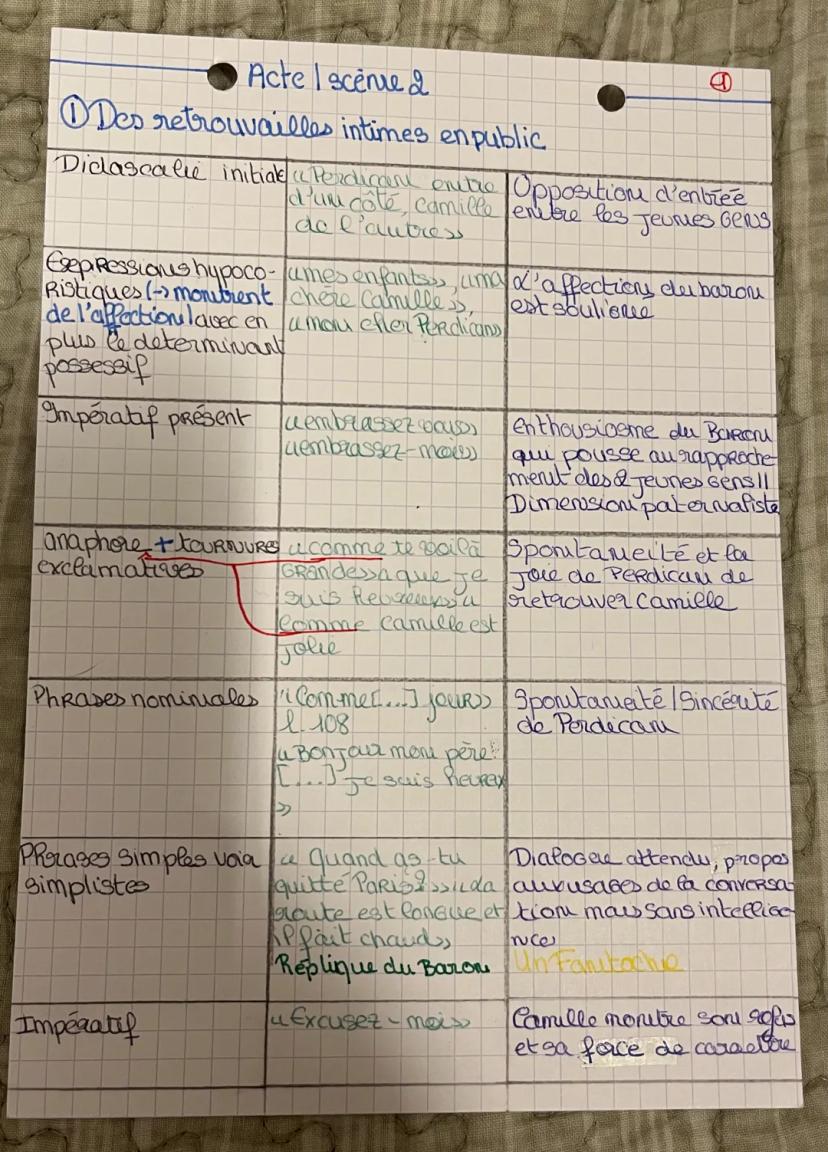 Acte 1 scène 2
①
① Des retrouvailles intimes en public
Didascalie initiale
« Perdican entre
d'un côté, Camille
de l'autre »
Opposition d'entrée
entre les jeunes gens
Expressions hypoco-
Ristiques (→ montrent
de l'affection) avec en
plus le determinant
possessif
« mes enfants », « ma
chère Camille »,
« mon cher Perdican »
d'affection du baron
est souligne
Impératif présent
« embrassez vous »
« embrassez-moi »
enthousiasme du Baron
qui pousse au rapproche
ment des 2 jeunes gens //
Dimension paternaliste
anaphore + tournures
exclamatives
« comme te voilà
grande » « que je
suis heureux » «
comme Camille est
jolie
Spontaneité et la
joie de Perdican de
retrouver Camille
Phrases nominales
« Comme [...] jour »
l. 108
« Bonjour mon père!
[...] je suis heureux
»
Spontaneité / Sincérité
de Perdican
Phrases simples voia
simplistes
« Quand as-tu
quitté Paris ? » « da
route est longue et
il fait chaud »
Réplique du Baron
Dialogue attendu, propos
aux usages de la conversa
tion mais sans intellige
nce
Un Fantoche
Impératif
« Excusez-moi »
Camille montre son refus
et sa force de caractère